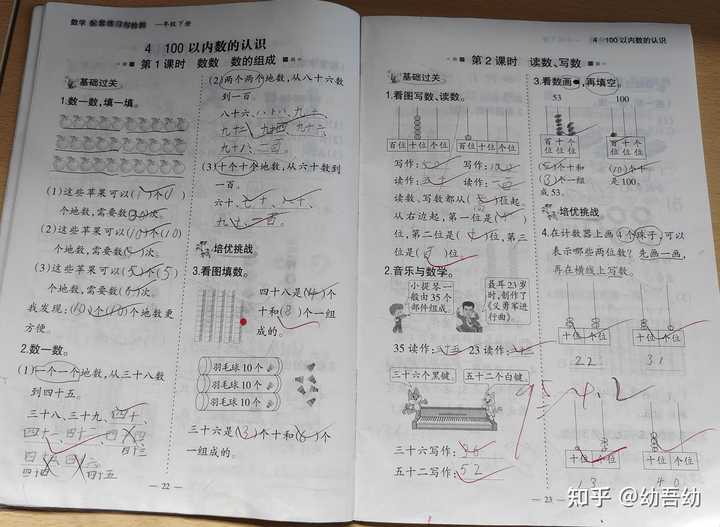 数学 配套练习与检测 一年级下册
4 100以内数的认识
第1课时 数数 数的组成
基础过关
1.数一数,填一填。
(1)这些苹果可以(1)个(1)
个地数,需要数(30)次。
(2)这些苹果可以(10)个(10)
个地数,需要数( )次。
(3)这些苹果可以(5)个(5)
个地数,需要数(6)次。
我发现:(10)个(10)个地数更
方便。
2.数一数。
(1)一个一个地数,从三十八数
到四十五。
三十八、三十九、四十、
四十一 四十二
四十三
四十四 四十五
(2)两个两个地数,从八十六数
到一百。
八十六、八十八、九十、
九十二、九十四、九十六、
九十八、一百。
(3)十个十个地数,从六十数到
一百。
六十、七十、八十、
九十、一百。
培优挑战
3.看图填数。
四十八是(4)个
十和(8)个一组
成的。
羽毛球10个
羽毛球10个
羽毛球10个
三十六是(3)个十和(6)个
一组成的。
22
4 100以内数的认识
第2课时 读数、写数
基础过关
1.看图写数、读数。
百位 十位 个位 百位 十位 个位
写作:50 写作:100
读作:五十 读作:一百
读数、写数都从( )位起。
从右边起,第一位是(个)
位,第二位是( )位,第三
位是( )位。
2.音乐与数学。
小提琴一
般由35个
部件组成
聂耳23岁
时,创作了
《义勇军进
行曲》。
35读作: 23读作:
三十六个黑键,
五十二个白键。
三十六写作:36
五十二写作:52
3.看数画●,再填空。
53 100
百位 十位 个位 百位 十位 个位
(5)个十和 (10)个十
(3)个一组 是100。
成53。
培优挑战
4.在计数器上画4个珠子,可以
表示哪些两位数?先画一画,
再在横线上写数。
十位 个位 十位 个位
22 31
十位 个位 十位 个位
13 40
95
4.2
23
知乎 @幼吾幼